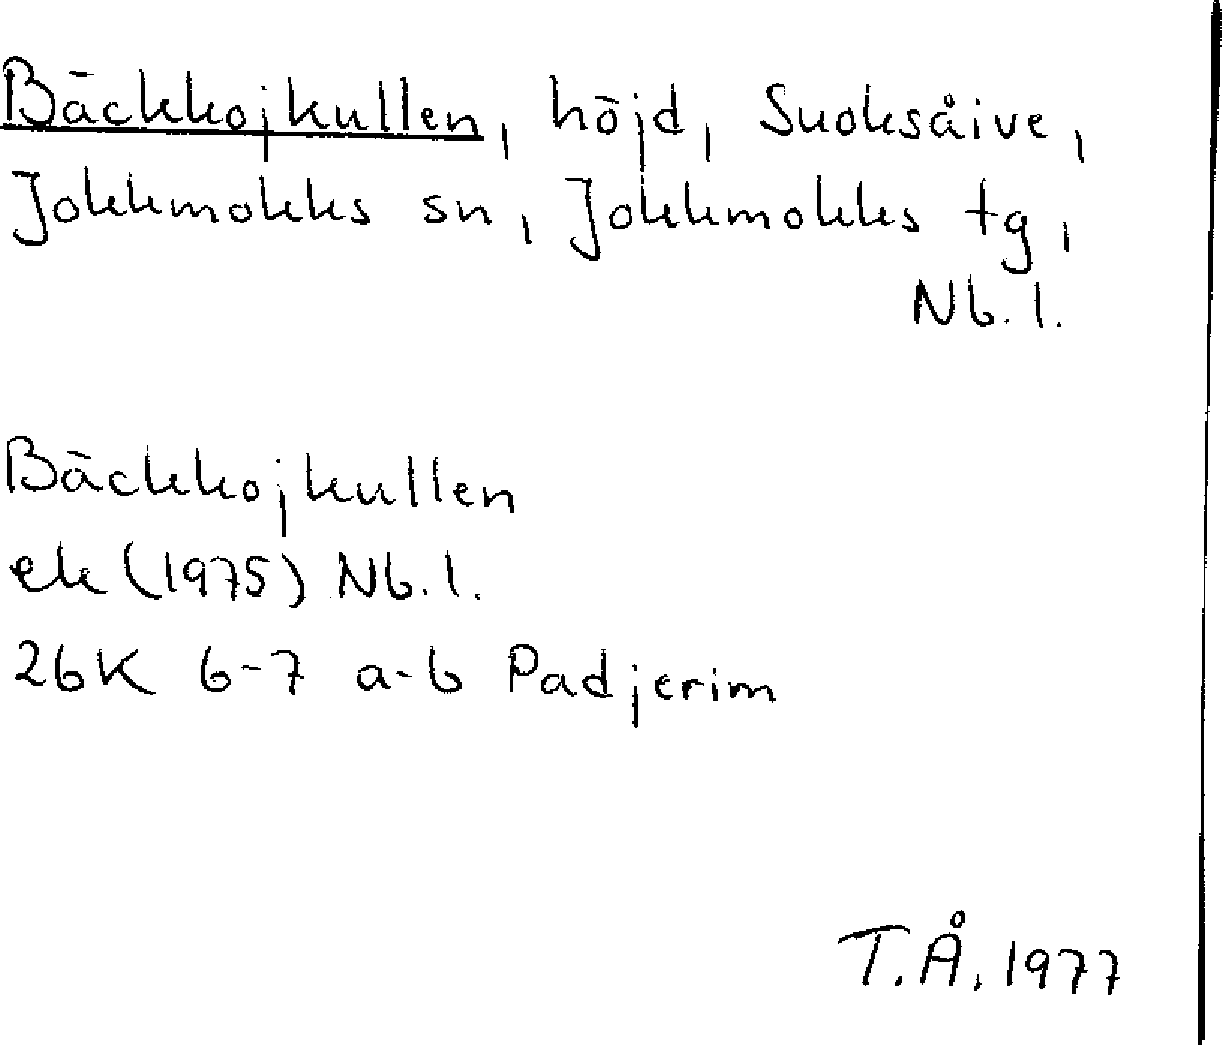 Bäckkojkullen, höjd, Suoksåive,
Jokkmokks sn, Jokkmokks tg,
Nb. l.
Bäckkojkullen
ek (1975) Nb. l.
26K 6-7 a-b Padjerim
T.Å. 1977